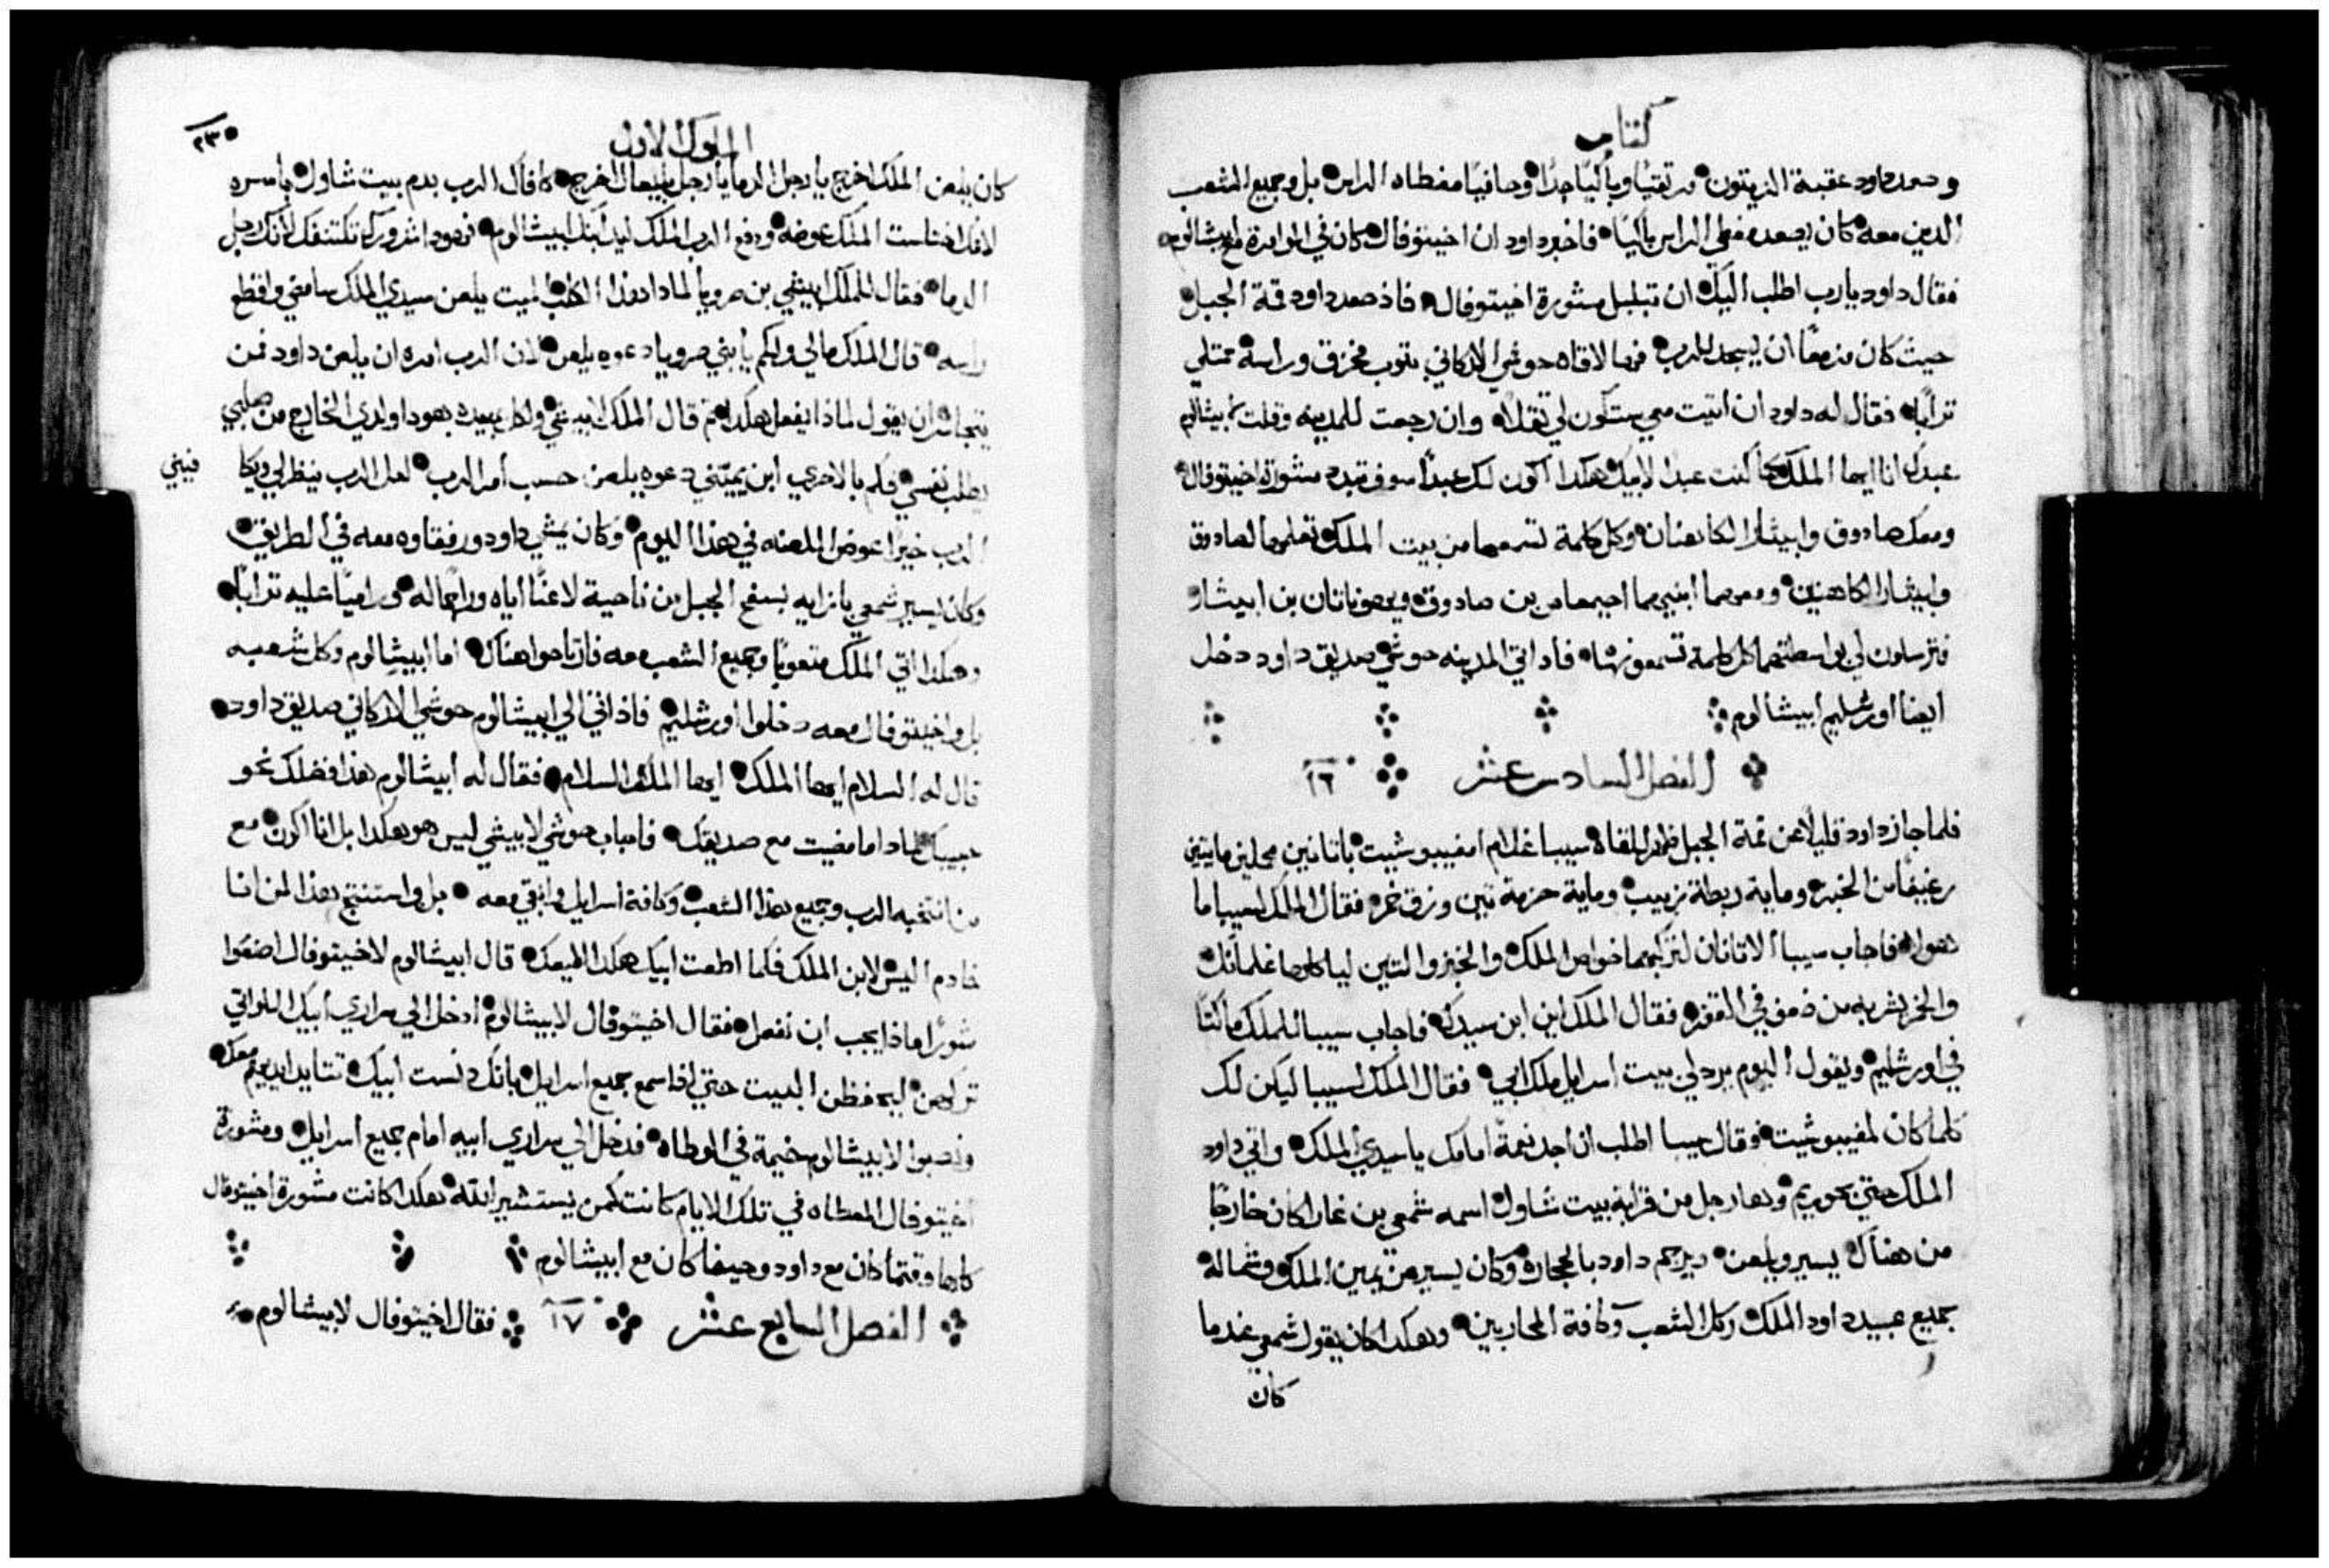 كتاب
وصعد داود عقبة الزيتون مرتقيًا وباكيًا جدًا وحافيًا مغطاه الراس بل وجميع الشعب
الذين معه كان يصعد مغطي الراس باكيًا فاخبر داود ان اخيتوفال كان في الموامرة مع ابيشالوم
فقال داود يارب اطلب اليك ان تبلبل مشورة اخيتوفال فاذ صعد داود قمة الجبل
حيث كان مزمعًا ان يسجد للرب فها لاقاه حوشي الاركاني بثوب مخزق وراسه ممتلي
ترابًا فقال له داود ان اتيت معي ستكون لي ثقلاً وان رجعت للمدينه وقلت لابيشالوم
عبدك انا ايها الملك كما كنت عبدًا لابيك هكدا اكون لك عبدًا سوف تبدد مشورة اخيتوفال
ومعك صادوق وابيثار الكاهنان وكل كلمة تسمعها من بيت الملك تعلمها لصادوق
وابيثار الكاهنين ومعهما ابنيهما احيمعاص بن صادوق ويهوناتان بن ابيثار
فترسلون لي بواسطتهما كل كلمة تسمعونها فاد اتي المدينه حوشي صديق داود دخل
ايضا اورشليم ابيشالوم
الفصل السادس عشر ١٦
فلما جاز داود قليلاً عن قمة الجبل ظهر للقاه سيبا غلام امفيبوشيت باتانين محملين مايتين
رغيفًا من الخبز وماية ربطة زبيب وماية حزمة تين وزق خمر فقال الملك لسيبا ما
هولا فاجاب سيبا الاتانان لتركبهما خواص الملك والخبز والتين لياكلوها غلمانك
والخمر يشربه من ضعف في القفر فقال الملك اين ابن سيدك فاجاب سيبا للملك ماكثًا
في اورشليم ويقول اليوم يرد لي بيت اسرايل ملك ابي فقال الملك لسيبا ليكن لك
كلما كان لمفيبوشيت فقال سيبا اطلب ان اجد نعمة امامك ياسيدي الملك واتي داود
الملك حتي بحوريم وهما رجل من قرابة بيت شاول اسمه شمعي بن غارا كان خارجًا
من هناك يسير ويلعن ويرجم داود بالحجاره وكان يسير عن يمين الملك وشماله
جميع عبيد داود الملك وكل الشعب وكافة المحاربين وهكدا كان يقول شمعي عندما
كان
الملوك الاول
٢٣٥
كان يلعن الملك اخرج يا رجل الدما يا رجل بليعال اخرج كافاك الرب بدم بيت شاول باسره
لانك اختلست الملك عوضه ودفع الرب الملك ليد ابنك ابيشالوم فهودا شرورك تكتنفك لانك رجل
الدما فقال للملك ابيشي بن صرويا لمادا هدا الكلب الميت يلعن سيدي الملك سامضي واقطع
راسه قال الملك مالي ولكم يا بني صرويا دعوه يلعن لان الرب امره ان يلعن داود فمن
يتجاسر ان يقول لماذا يفعل هكدا ثم قال الملك لابيشي ولكل عبيده هودا ولدي الخارج من صلبي
يطلب نفسي فكم بالاحري ابن يميني دعوه يلعن حسب أمر الرب لعل الرب ينظر لي ويكا
فيني
الرب خيرًا عوض اللعنه في هذا اليوم وكان يمشي داود ورفقاوه معه في الطريق
وكان يسير شمعي بازايه بسفح الجبل من ناحية لاعنًا اياه وراجمًا له وراميًا عليه ترابًا
وهكدا اتي الملك متعوبًا وجميع الشعب معه فارتاحوا هناك اما ابيشالوم وكل شعبه
بل واخيتوفال معه دخلوا اورشليم فاذ اتي الي ابيشالوم حوشي الاركاني صديق داود
قال له السلام ايها الملك ايها الملك السلام فقال له ابيشالوم هذا فضلك نحو
حبيبك لمادا ما مضيت مع صديقك فاجاب حوشي لابيشي ليس هو هكدا بل انا اكون مع
من انتخبه الرب وجميع هذا الشعب وكافة اسرايل وابقي معه بل واستنتج هذا لمن انا
خادم اليس لابن الملك فكما اطعت ابيك هكدا اطيعك قال ابيشالوم لاخيتوفال اضعوا
شورًا ماذا يجب ان نفعل فقال اخيتوفال لابيشالوم ادخل الي سراري أبيك اللواتي
تركهن ليحفظن البيت حتي اذا سمع جميع اسرايل بانك دنست ابيك تتايد ايديهم معك
ونصبوا لابيشالوم خيمة في الوطاه فدخل الي سراري ابيه امام جميع اسرايل ومشورة
اخيتوفال المعطاه في تلك الايام كانت كمن يستشير الله هكدا كانت مشورة اخيتوفال
كلها وقتما كان مع داود وحينما كان مع ابيشالوم
الفصل السابع عشر ١٧ فقال اخيتوفال لابيشالوم